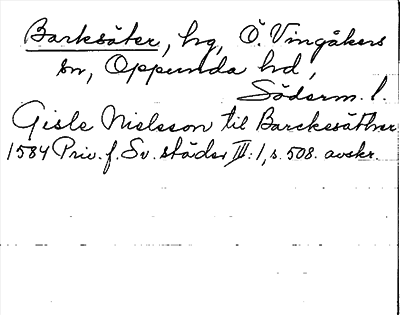 Barksäter, hg, Ö. Vingåkers
sn, Oppunda hd,
Söderm. l.
Gisle Nielsson til Barckesäther
1584 Priv. f. Sv. städer III:1, s. 508. avskr.